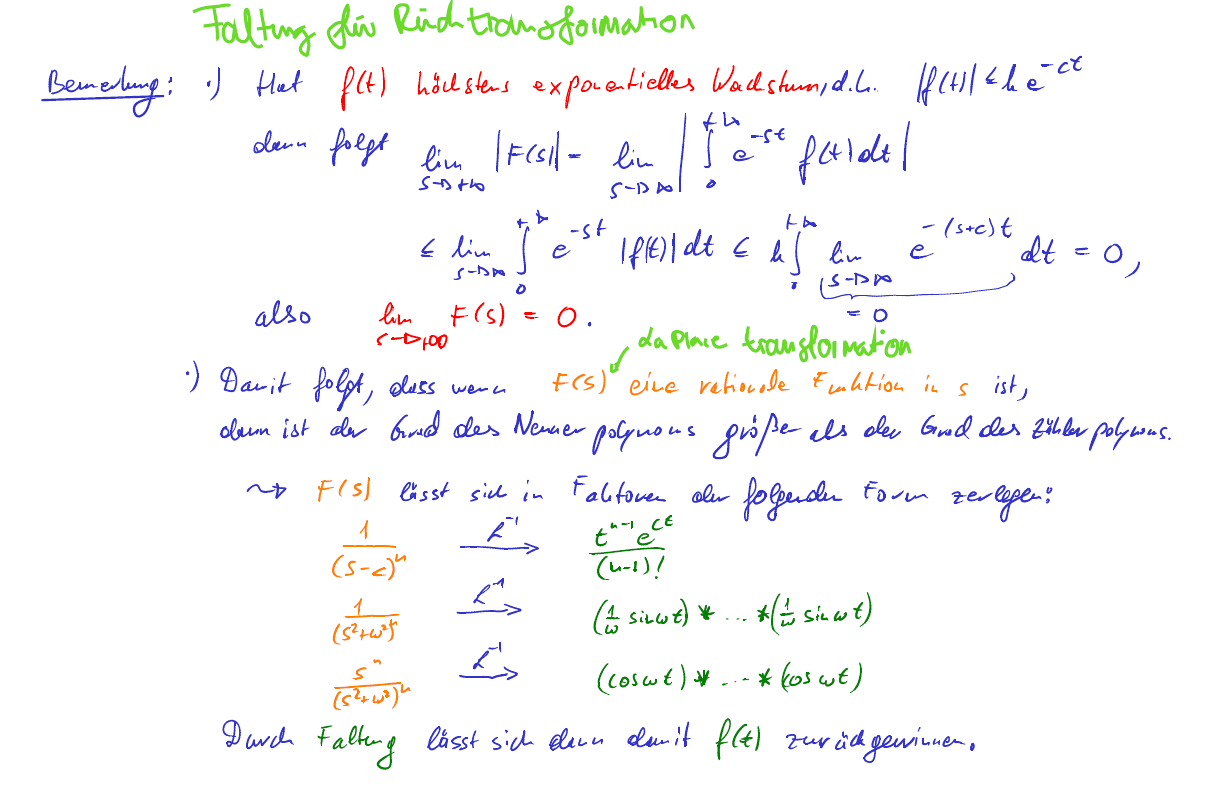 Faltung für Rücktransformation
Bemerkung: •) Hat f(t) höchstens exponentielles Wachstum, d.h. |f(t)| ≤ k e^{-ct}
dann folgt lim_{s→+∞} |F(s)| = lim_{s→∞} | ∫_0^{+∞} e^{-st} f(t) dt |
≤ lim_{s→∞} ∫_0^{+∞} e^{-st} |f(t)| dt ≤ k ∫_0^{+∞} lim_{s→∞} e^{-(s+c)t} dt = 0,
= 0
also lim_{s→+∞} F(s) = 0.
LaPlace transformation
•) Damit folgt, dass wenn F(s) eine rationale Funktion in s ist,
dann ist der Grad des Nennerpolynoms größer als der Grad des Zählerpolynoms.
⇝ F(s) lässt sich in Faktoren der folgenden Form zerlegen:
1/(s-c)^n →^{L^{-1}} t^{n-1} e^{ct}/(n-1)!
1/(s²+ω²)^n →^{L^{-1}} (1/ω sin ωt) * ... * (1/ω sin ωt)
s^n/(s²+ω²)^n →^{L^{-1}} (cos ωt) * ... * (cos ωt)
Durch Faltung lässt sich dann damit f(t) zurückgewinnen.